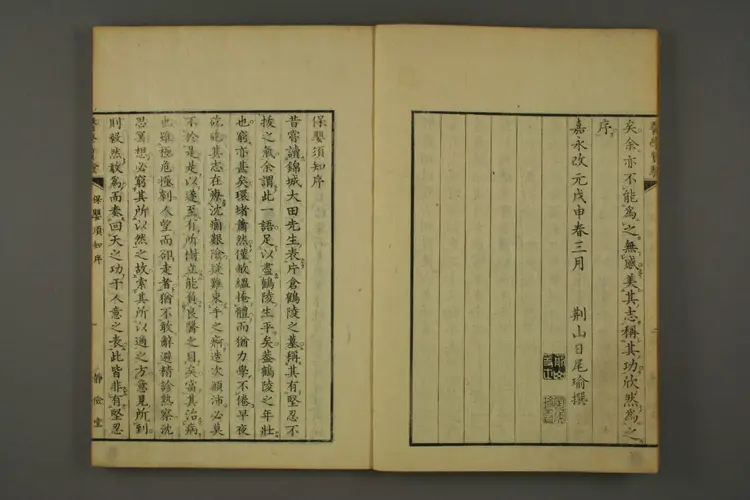 矣余亦不能爲之無感美其志稱其功欣然爲之
序
嘉永改元戊申春三月　荆山日尾瑜撰
保嬰須知序
昔嘗讀錦城大田先生表片倉鶴陵之墓稱其有堅忍不
拔之氣余謂此一語足以盡鶴陵生平矣蓋鶴陵之年壯
也窮亦甚矣環堵蕭然僅敝縕掩體而猶力學不倦早夜
矻矻其志在療沈痼艱險疑難束手之痾造次顚沛必莫
不於是是以遂至有所樹立能負良醫之目矣當其治病
也雖極危極劇人望而卻走者猶不敢辭避精診熟察沈
思冥想必窮其所以然之故索其所以適之方意見所到
則毅然敢爲而奏回天之功于人意之表此皆非有堅忍
保嬰須知序
一
靜儉堂